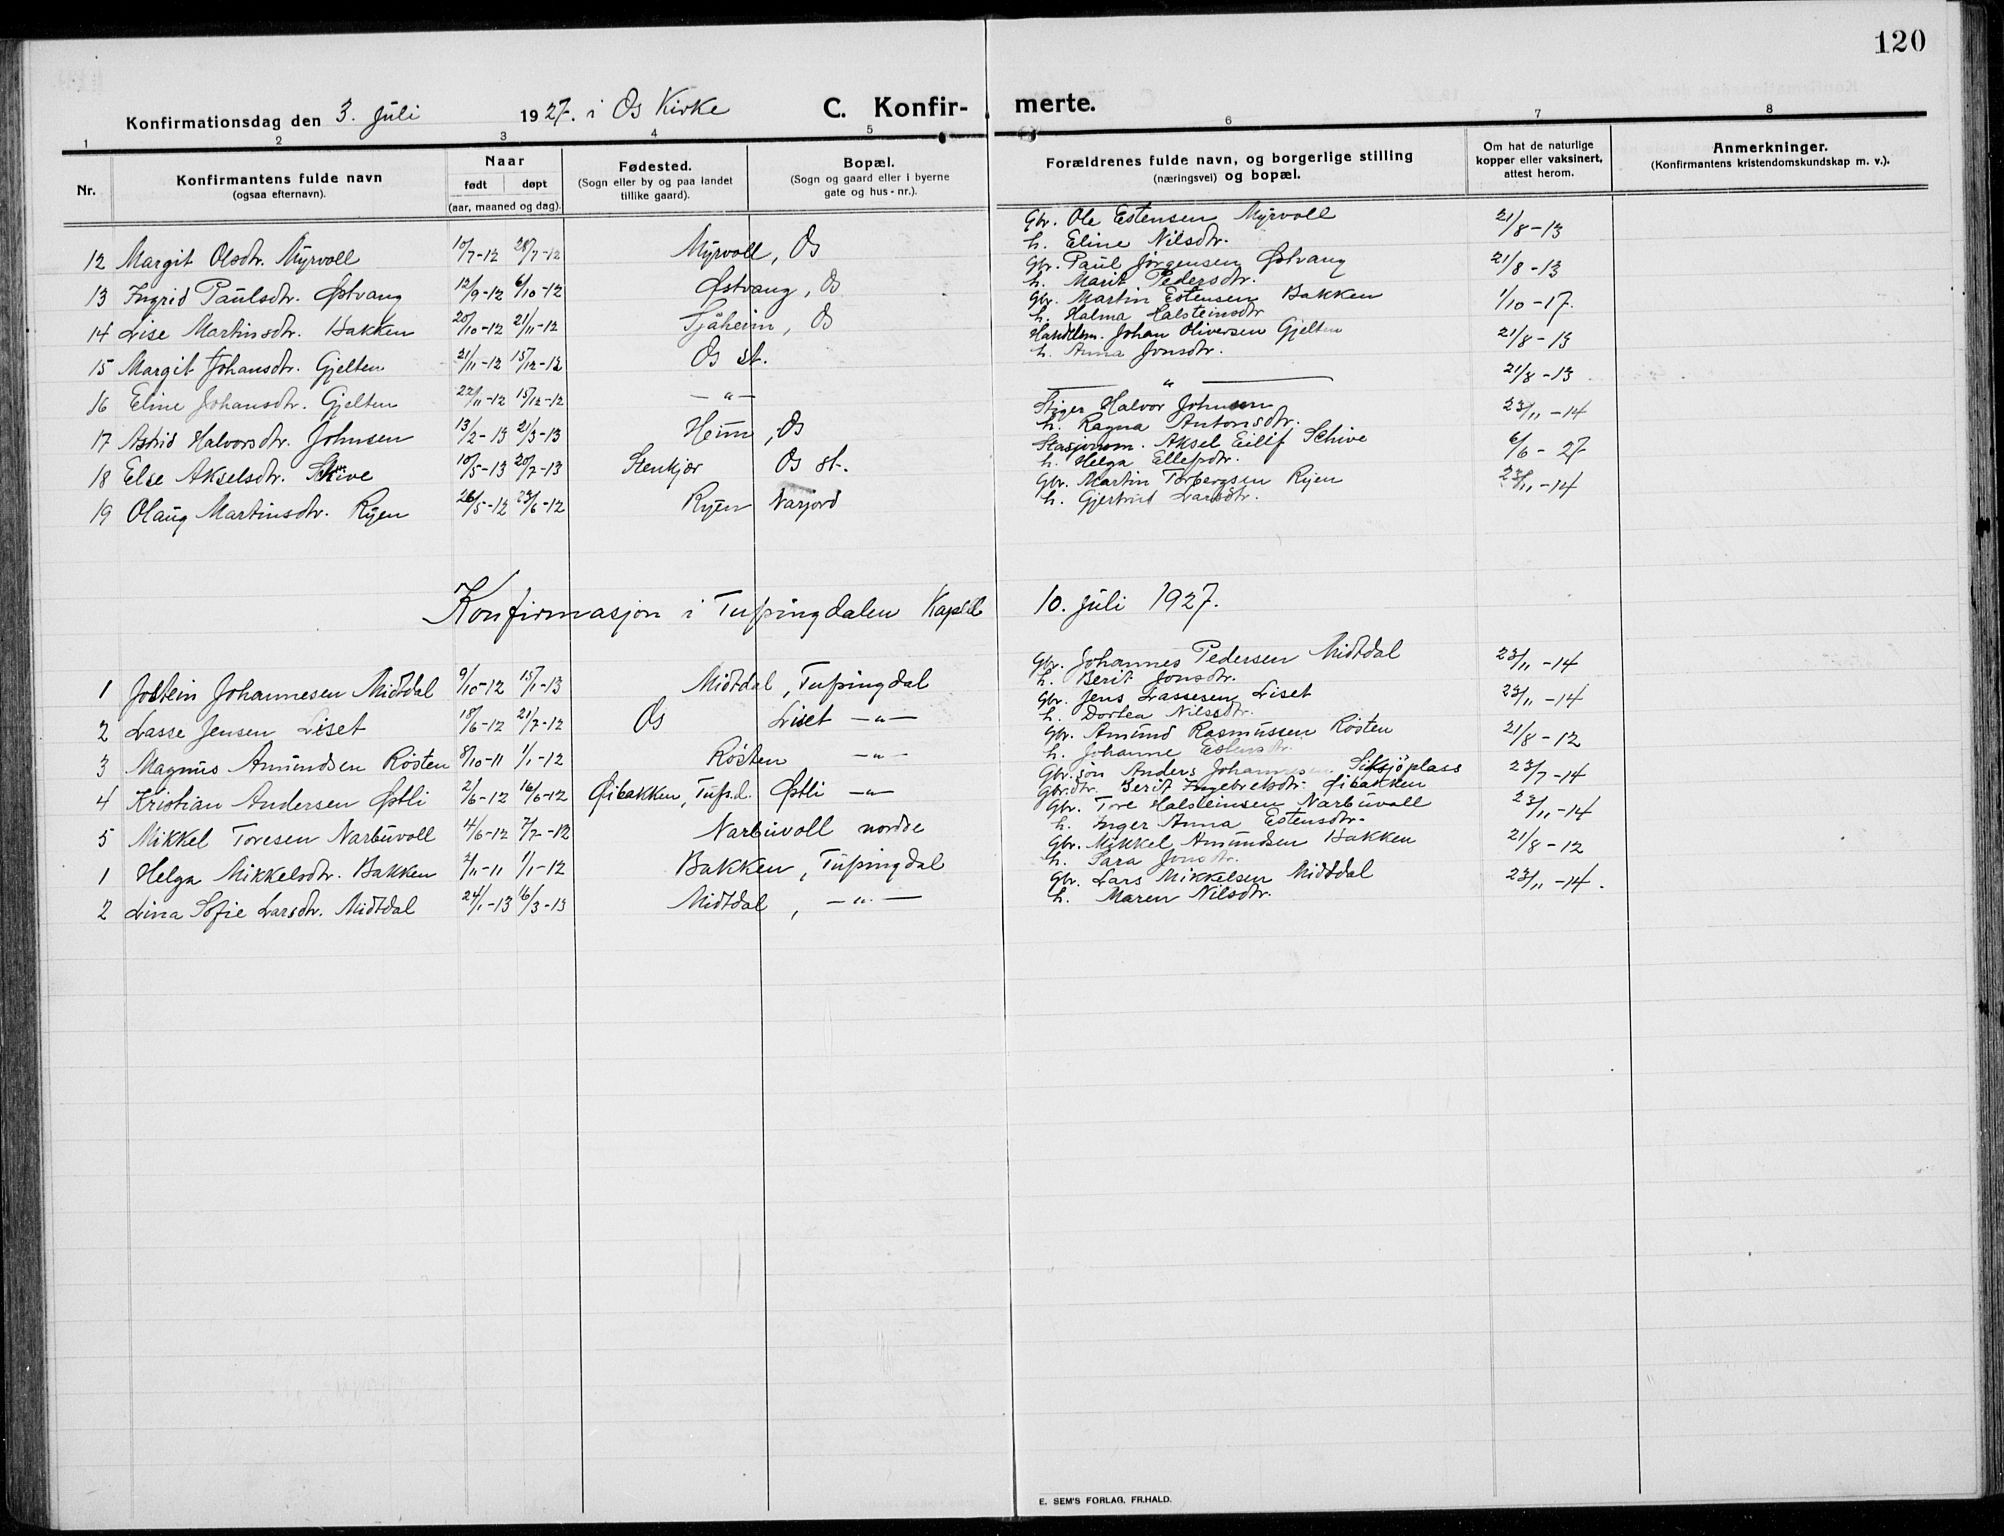 120
Konfirmationsdag den 3. Juli 1927. i Os Kirke C. Konfir- merte.
1 2 3 4 5 6 7 8
Nr. Konfirmantens fulde navn (ogsaa efternavn). Naar født døpt (aar, maaned og dag). Fødested. (Sogn eller by og paa landet tillike gaard). Bopæl. (Sogn og gaard eller i byerne gate og hus-nr.). Forældrenes fulde navn, og borgerlige stilling (næringsvei) og bopæl. Om hat de naturlige kopper eller vaksinert, attest herom. Anmerkninger. (Konfirmantens kristendomskundskap m. v.).
12 Margit Olsdtr. Myrvoll 10/7-12 28/7-12 Myrvoll, Os Gbr. Ole Estensen Myrvoll 21/8-13
h. Eline Nilsdtr.
13 Ingrid Paulsdtr. Østvang 12/9-12 6/10-12 Østvang, Os Gbr. Paul Jørgensen Østvang 21/8-13
h. Marit Pedersdtr.
14 Lise Martinsdtr. Bakken 20/10-12 21/11-12 Sjåheim, Os Gbr. Martin Estensen Bakken 1/10-17.
h. Halma Halsteinsdtr
15 Margit Johansdtr. Gjelten 21/11-12 15/12-12 Os st. Handelsm. Johan Oliversen Gjelten 21/8-13
h. Anna Jonsdtr.
16 Eline Johansdtr. Gjelten 22/11-12 15/12-12 — " — — " — 21/8-13
17 Astrid Halvorsdtr. Johnsen 13/2-13 21/3-13 Heim, Os Stiger Halvor Johnsen 23/11-14
h. Ragna Antonsdtr.
18 Else Akselsdtr. Skive 10/5-13 20/7-13 Stenkjær Os st. Stasjonsm. Aksel Eilif Schive 6/6-27
h. Helga Ellefsdtr.
19 Olaug Martinsdtr. Ryen 26/5-12 23/6-12 Ryen Narjord Gbr. Martin Torbergsen Ryen 23/11-14
h. Gjertrud Larsdtr.
Konfirmasjon i Tufsingdalen Kapell 10. Juli 1927.
1 Jostein Johannesen Midtdal 9/10-12 15/1-13 Midtdal, Tufsingdal Gbr. Johannes Pedersen Midtdal 23/11-14
h. Berit Jonsdtr.
2 Lasse Jensen Liset 18/6-12 21/7-12 Os Liset — " — Gbr. Jens Lassesen Liset 23/11-14
h. Dortea Nilsdtr.
3 Magnus Amundsen Røsten 8/10-11 1/1-12 Røsten — " — Gbr. Amund Rasmussen Røsten 21/8-12
h. Johanne Estensdtr.
4 Kristian Andersen Østli 2/6-12 16/6-12 Øibakken, Tufs.d. Østli — " — Gbr.søn Anders Johannesen Siksjöplass 23/7-14
Gbr.dtr. Berit Ingebretsdtr. Øibakken
5 Mikkel Toresen Narbuvoll 4/6-12 7/7-12 Narbuvoll nordre Gbr. Tore Halsteinsen Narbuvoll 23/11-14
h. Inger Anna Estensdtr.
1 Helga Mikkelsdtr. Bakken 2/11-11 1/1-12 Bakken, Tufsingdal Gbr. Mikkel Amundsen Bakken 21/8-12
h. Sara Jonsdtr.
2 Lina Sofie Larsdtr. Midtdal 24/1-13 16/3-13 Midtdal, — " — Gbr. Lars Mikkelsen Midtdal 23/11-14.
h. Maren Nilsdtr.
E. SEM'S FORLAG, FR.HALD.